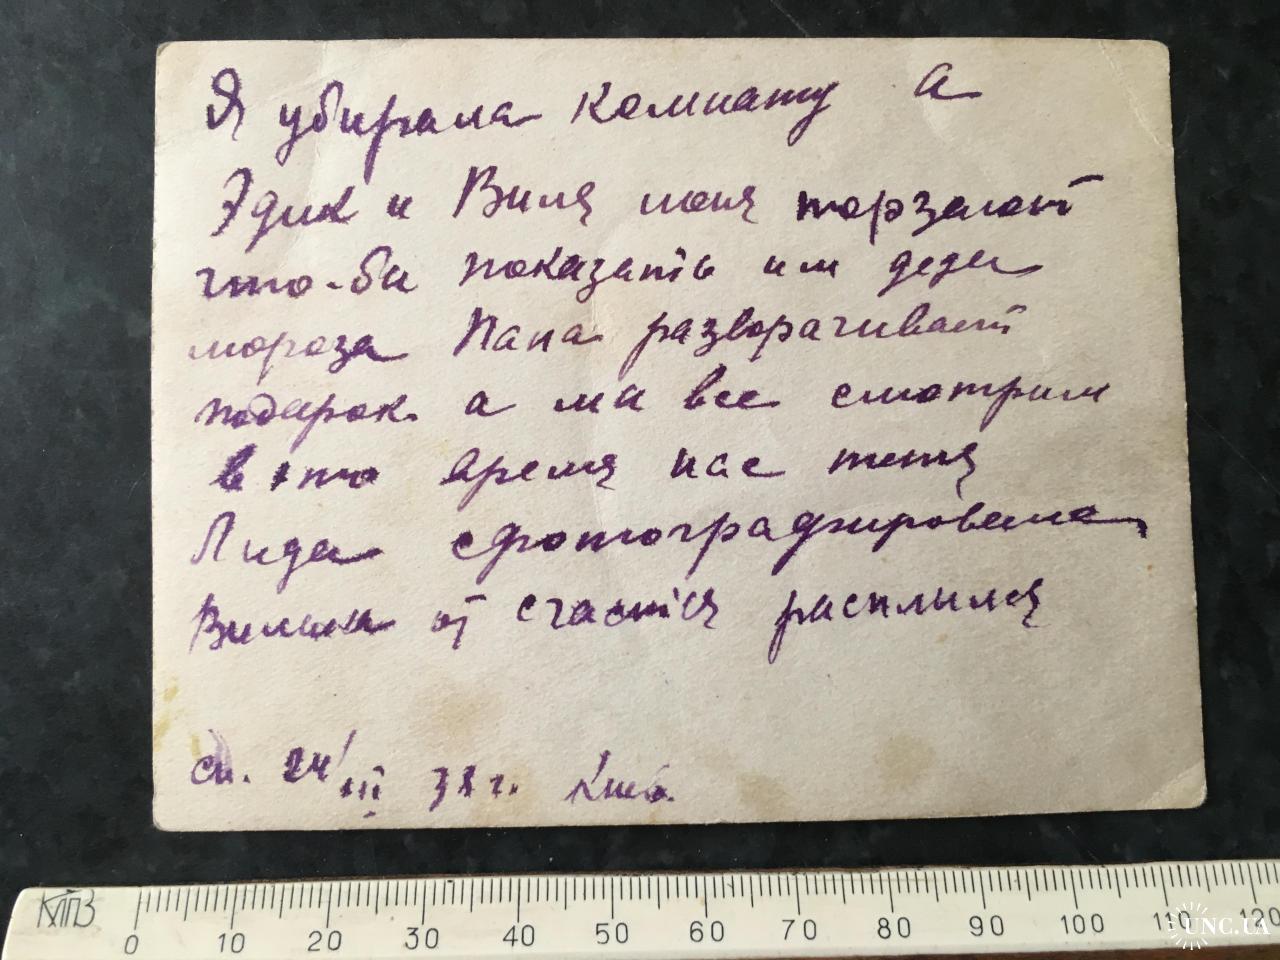 Я убирала комнату а
Эдик и Виля меня торзают
что-би показать им деда
мороза Папа разворачивает
подарок а ми все смотрим
в это время нас тетя
Лида сфотографировала
Вилька от счастія расплился
сн. 24/III 38 г. Киев.
КМПЗ
0 10 20 30 40 50 60 70 80 90 100 110 120
UNC.UA